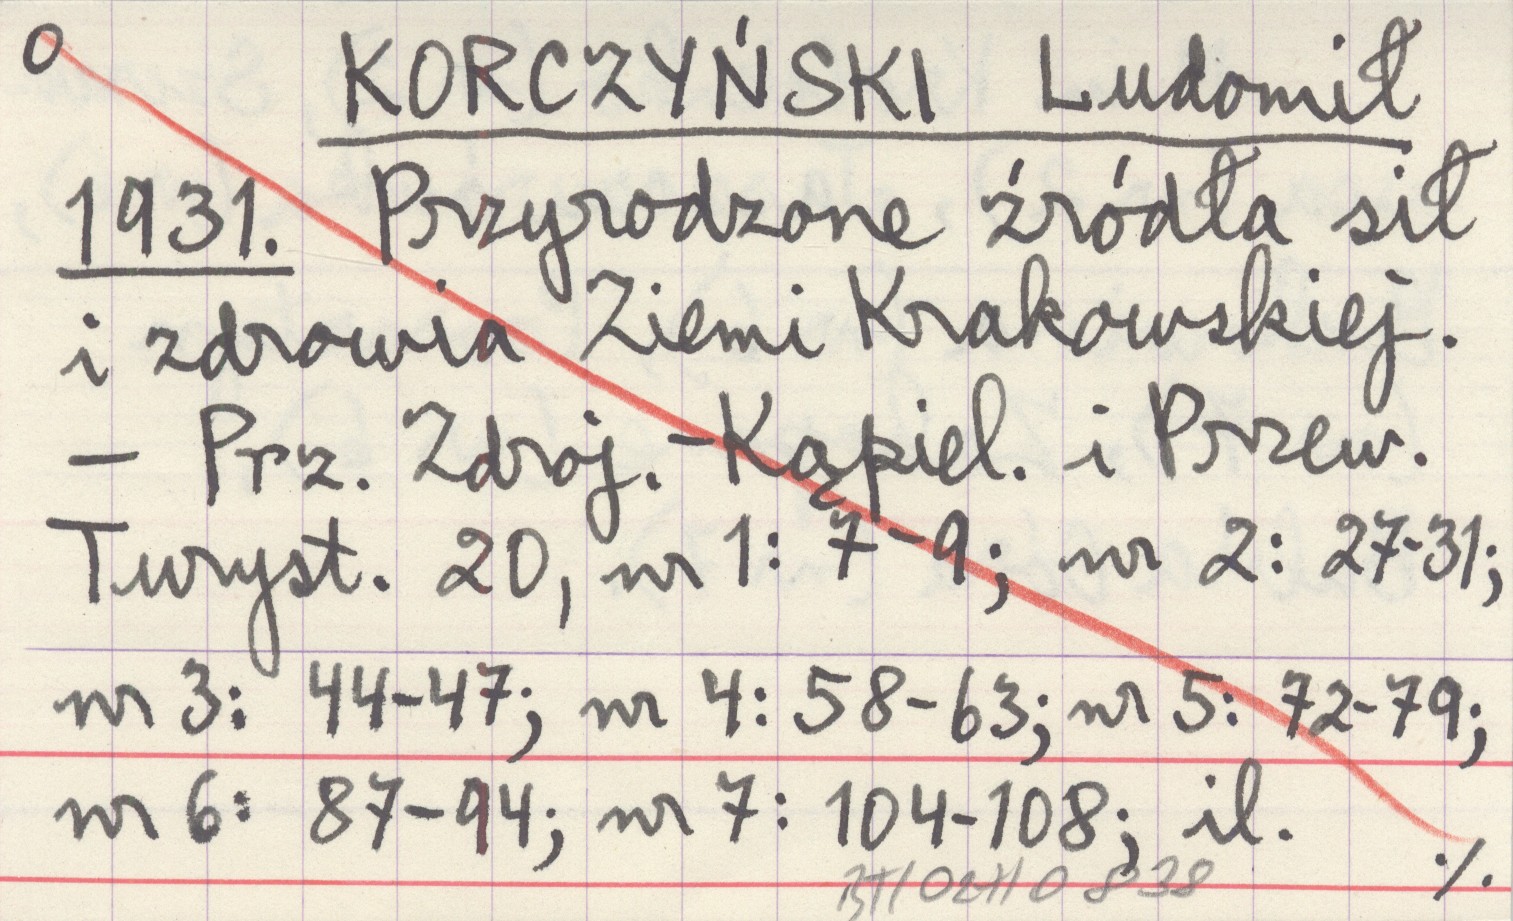 O KORCZYŃSKI Ludomił
1931. Przyrodzone źródła sił
i zdrowia Ziemi Krakowskiej.
– Prz. Zdroj.-Kąpiel. i Przew.
Turyst. 20, nr 1: 7-9; nr 2: 27-31;
nr 3: 44-47; nr 4: 58-63; nr 5: 72-79;
nr 6: 87-94; nr 7: 104-108; il.
./.